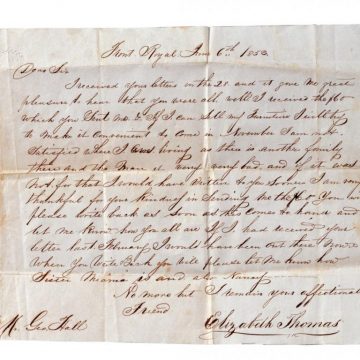 Front Royal June 6th 1853
Dear Sir
I received your letters on the 21 and it gave me great
pleasure to hear that you were all well I received the $10
which you sent me If I can sell my furniture I will try
to make it convenient to come in November I am not
satisfied where I am living as there is another family
there and the man is very very bad and if it was
not for that I would have written to you sooner I am very
thankful for your kindness in sending me the $ of you will
please write back as soon as this comes to hand and
let me know how you all are If I had received your
letter last I would have been out there Now
When you write back you will please let me know how
Sister is and also Nancy
No more but I remain your affectionate
Friend
Elizabeth Thomas
Mr. Geo Hall